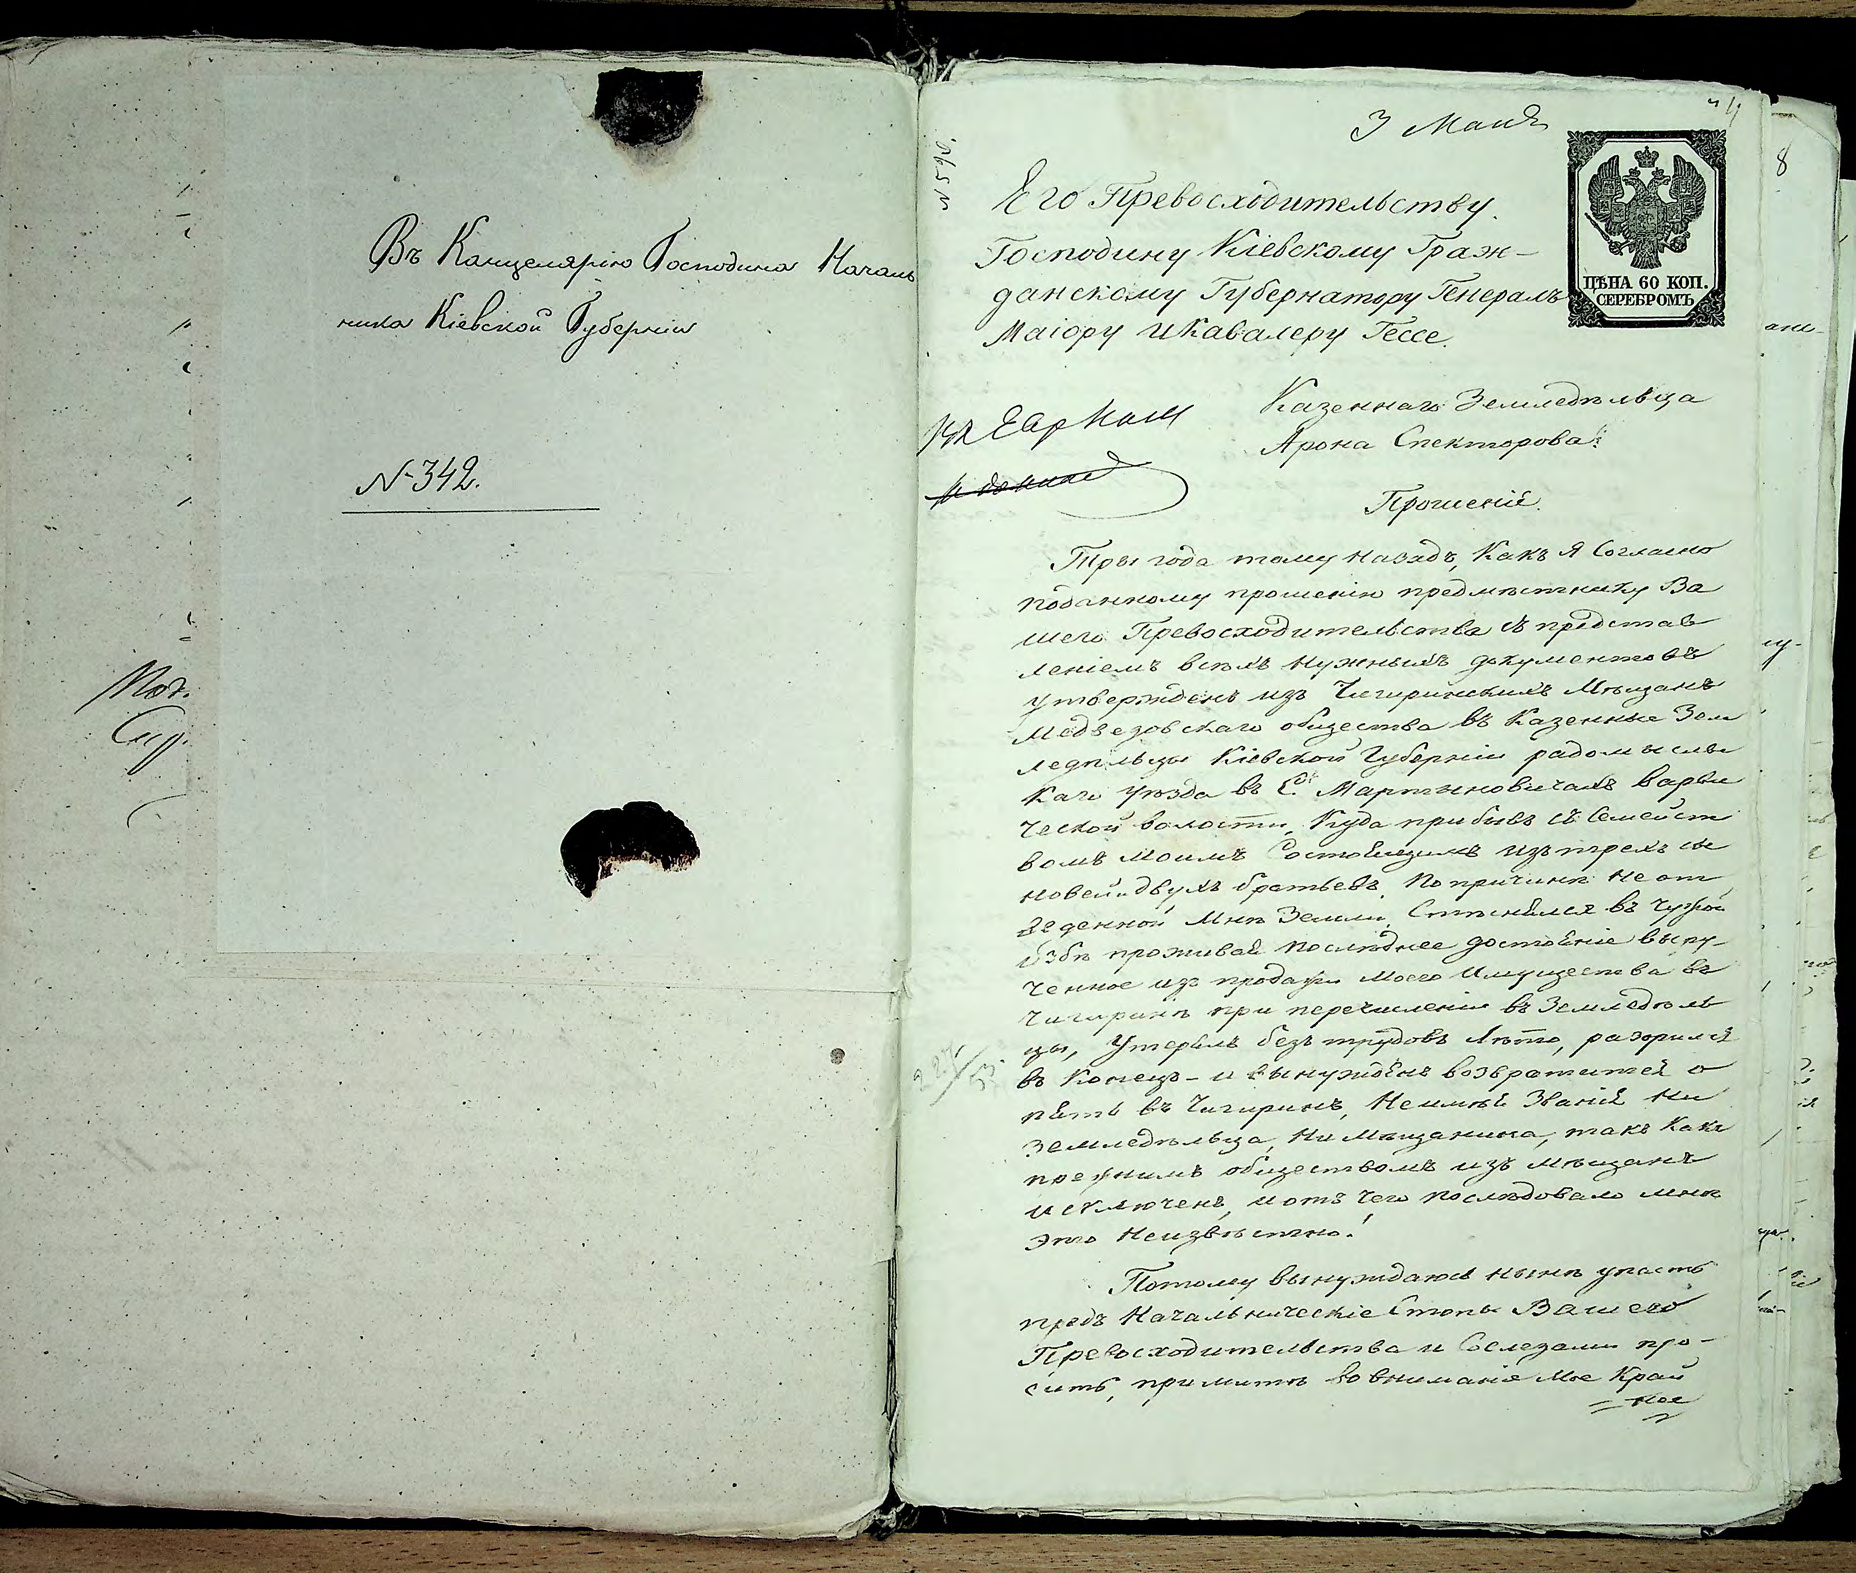 Въ Канцелярію Господина Началь
ника Кіевской Губерніи
№ 342.
3 Маія
Его Превосходительству.
Господину Кіевскому Граж-
данскому Губернатору Генералъ
Маіору и Кавалеру Гессе.
ЦѢНА 60 КОП.
СЕРЕБРОМЪ
Казеннаго Земледѣльца
Арона Спекторова
Прошеніе.
Тры года тому назадъ, Какъ я Согласно
поданному прошенію предмѣстнику Ва
шего Превосходительства съ представ
леніемъ всѣхъ нужныхъ документовъ
утвержденъ изъ Чигиринскихъ Мѣщанъ
Медведовскаго общества въ Казенные Зем
ледѣльцы Кіевской Губерніи радомысль
каго уѣзда въ С. Мартыновичахъ Варви
ческой волости, Куда прибывъ съ Семейст
вомъ моимъ Состоящимъ изъ трехъ сы
новей и двухъ братьевъ, По причинѣ не от
веденной Мнѣ Земли, Стѣснялся въ Чужой
избѣ проживая последнее достояніе выру-
ченное изъ продажи Моего Имущества въ
Чигиринѣ при перечисленіи въ Земледѣль
цы, Утерялъ безъ трудовъ Лѣто, разорился
въ Конецъ - и вынужденъ возвратится о
пять въ Чигиринъ, Не имѣя Званія Ни
Земледѣльца, Ни Мѣщанина, такъ Какъ
прежнимъ обществомъ изъ мѣщанъ
исключенъ, и отъ Чего последовало мнѣ
это Неизвѣстно!
Потому вынуждаюсь нынѣ упасть
предъ Начальническіе Стопы Вашего
Превосходительства и Сослезами про-
сить, примить во вниманіе Мое Край
ное